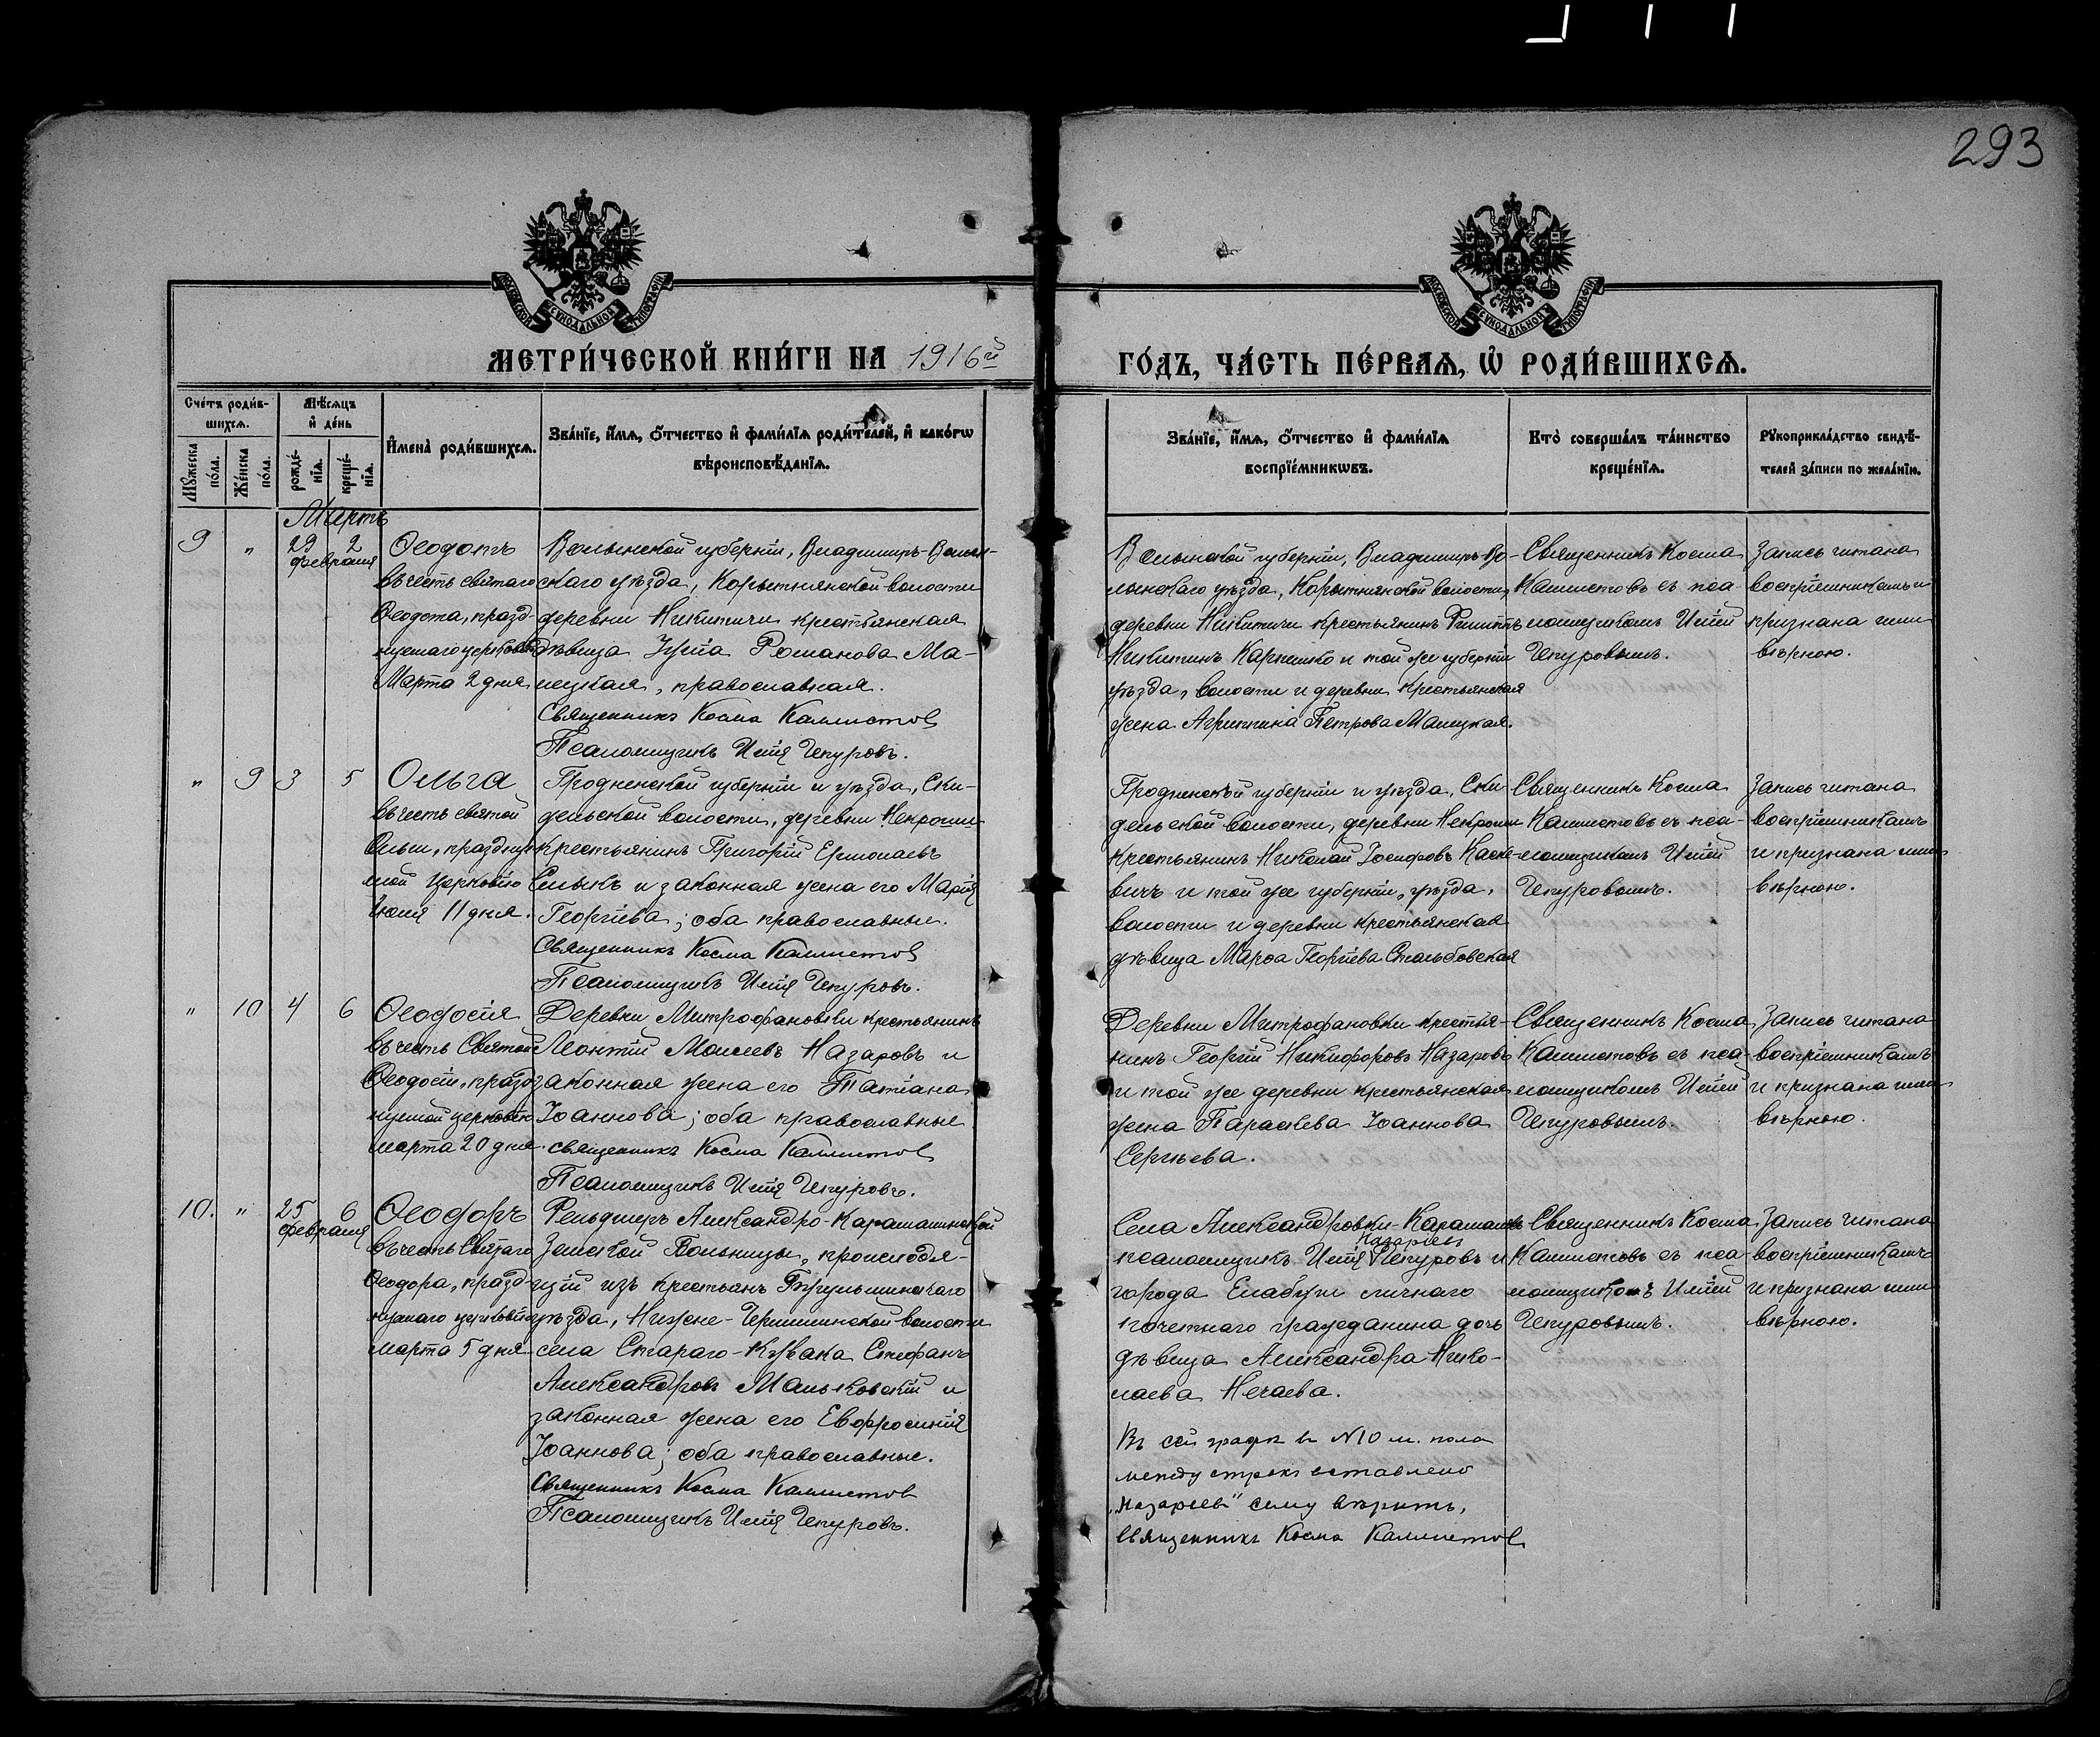 293
МОСКОВСКОЙ СѴНОДАЛЬНОЙ ТИПОГРАФІИ
МОСКОВСКОЙ СѴНОДАЛЬНОЙ ТИПОГРАФІИ
МЕТРИ́ЧЕСКОЙ КНИ́ГИ НА 1916й
ГО́ДЪ, ЧА́СТЬ ПЕ́РВАѦ, Ѡ҆ РОДИ́ВШИХСѦ.
Сче́тъ роди́в-
шихсѧ.
Мꙋ́жеска по́ла.
Же́нска по́ла.
Мѣ́сѧцъ
и҆ де́нь
рожде́-
нїѧ.
креще́-
нїѧ.
И҆мена̀ роди́вшихсѧ.
Зва́нїе, и҆́мѧ, ѻ҆́тчество и҆ фами́лїѧ роди́телей, и҆ како́гѡ
вѣроисповѣ́данїѧ.
Зва́нїе, и҆́мѧ, ѻ҆́тчество и҆ фами́лїѧ
воспрїе́мникѡвъ.
Кто̀ соверша́лъ та́инство
креще́нїѧ.
Рꙋкоприкла́дство свидѣ́-
телей за́писи по жела́нїю.
Мартъ
9 " 29 2
февраля
Ѳеодотъ
въ честь святаго
Ѳеодота, празд-
нуемаго церковію
Марта 2 дня
Волынской губерніи, Владимиръ-Волын-
скаго уѣзда, Корытнянской волости
деревни Микитичи крестьянская
дѣвица Іулія Романова Ма-
лецкая, православная.
Священникъ Косма Каллистов
Псаломщикъ Илія Чепуровъ.
Волынской губерніи, Владимиръ-Во-
лынскаго уѣзда, Корытнянской волости,
деревни Микитичи крестьянинъ Филиппъ
Никитинъ Карпешко и той же губерніи
уѣзда, волости и деревни крестьянская
жена Агриппина Петрова Малецкая.
Священникъ Косма
Каллистовъ съ пса-
ломщикомъ Иліей
Чепуровымъ.
Запись читана
воспріемникамъ и
признана ими
вѣрною.
" 9 3 5
Ольга
въ честь святой
Ольги, празднуе-
мой Церковію
Іюля 11 дня.
Гродненской губерніи и уѣзда, Ски-
дельской волости, деревни Некроши
крестьянинъ Григорій Ермолаевъ
Смыкъ и законная жена его Марія
Георгіева; оба православные.
Священникъ Косма Каллистов
Псаломщикъ Илія Чепуровъ.
Гродненской губерніи и уѣзда, Ски-
дельской волости, деревни Некроши
крестьянинъ Николай Іосифовъ Каске-
вичъ и той же губерніи, уѣзда,
волости и деревни крестьянская
дѣвица Марѳа Георгіева Стольбовская
Священникъ Косма
Каллистовъ съ пса-
ломщикомъ Иліей
Чепуровымъ.
Запись читана
воспріемникамъ
и признана ими
вѣрною.
" 10 4 6
Ѳеодосія
въ честь Святой
Ѳеодосіи, празд-
нуемой церковію
марта 20 дня.
Деревни Митрофановки крестьянинъ
Леонтій Моисеевъ Назаровъ и
законная жена его Татіана
Іоаннова; оба православные
священникъ Косма Каллистов
Псаломщикъ Илія Чепуровъ.
Деревни Митрофановки крестья-
нинъ Георгій Никифоровъ Назаровъ
и той же деревни крестьянская
жена Параскева Іоаннова
Сергѣева.
Священникъ Косма
Каллистовъ съ пса-
ломщикомъ Иліей
Чепуровымъ.
Запись читана
воспріемникамъ
и признана ими
вѣрною.
10. " 25 6
февраля
Ѳеодоръ
въ честь Святаго
Ѳеодора, празд-
нуемаго церковію
марта 5 дня
Фельдшеръ Александро-Карамалинской
Земской Больницы, происходя-
щій изъ крестьянъ Бугульминскаго
уѣзда, Нижне-Чершилинской волости
села Стараго-Кувака Стефанъ
Александровъ Мальковскій и
законная жена его Евфросинія
Іоаннова; оба православные.
Священникъ Косма Каллистов
Псаломщикъ Илія Чепуровъ.
Села Александровки-Карамалы
Назаріевъ
псаломщикъ Илія Чепуровъ и
города Елабуги личнаго
почетнаго гражданина дочь
дѣвица Александра Нико-
лаева Нечаева.
Въ сей графѣ въ №10 м. пола
между строкъ вставлено
„Назаріевъ" сему вѣрить,
Священникъ Косма Каллистов
Священникъ Косма
Каллистовъ съ пса-
ломщикомъ Иліей
Чепуровымъ.
Запись читана
воспріемникамъ
и признана ими
вѣрною.